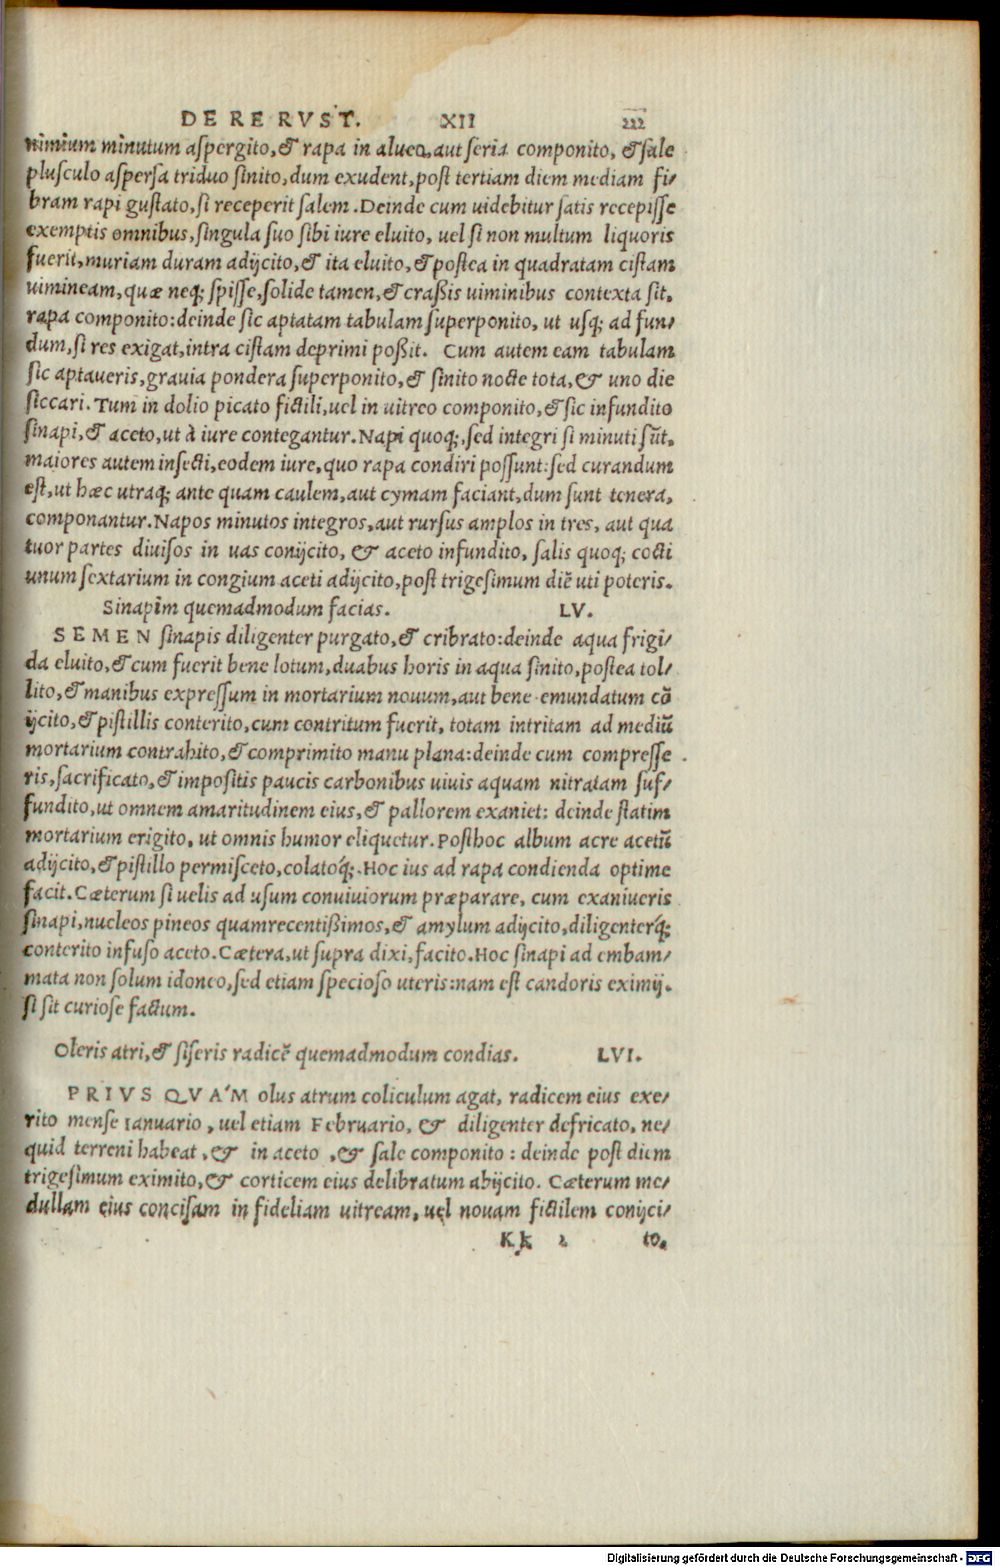 DE RE RVST. XII 222
nimium minutum aspergito, & rapa in alueo, aut seria componito, & sale
plusculo aspersa triduo sinito, dum exudent, post tertiam diem mediam fi-
bram rapi gustato, si receperit salem. Deinde cum uidebitur satis recepisse
exemptis omnibus, singula suo sibi iure eluito, uel si non multum liquoris
fuerit, muriam duram adijcito, & ita eluito, & postea in quadratam cistam
uimineam, quæ neq; spisse, solide tamen, & craßis uiminibus contexta sit,
rapa componito: deinde sic aptatam tabulam superponito, ut usq; ad fun-
dum, si res exigat, intra cistam deprimi poßit. Cum autem eam tabulam
sic aptaueris, grauia pondera superponito, & sinito nocte tota, & uno die
siccari. Tum in dolio picato fictili, uel in uitreo componito, & sic infundito
sinapi, & aceto, ut à iure contegantur. Napi quoq;, sed integri si minuti sūt,
maiores autem insecti, eodem iure, quo rapa condiri possunt: sed curandum
est, ut hæc utraq; ante quam caulem, aut cymam faciant, dum sunt tenera,
componantur. Napos minutos integros, aut rursus amplos in tres, aut qua
tuor partes diuisos in uas conijcito, & aceto infundito, salis quoq; cocti
unum sextarium in congium aceti adijcito, post trigesimum diē uti poteris.
Sinapim quemadmodum facias. LV.
SEMEN sinapis diligenter purgato, & cribrato: deinde aqua frigi-
da eluito, & cum fuerit bene lotum, duabus horis in aqua sinito, postea tol-
lito, & manibus expressum in mortarium nouum, aut bene emundatum cō
ijcito, & pistillis conterito, cum contritum fuerit, totam intritam ad mediū
mortarium contrahito, & comprimito manu plana: deinde cum compresse
ris, sacrificato, & impositis paucis carbonibus uiuis aquam nitratam suf-
fundito, ut omnem amaritudinem eius, & pallorem exaniet: deinde statim
mortarium erigito, ut omnis humor eliquetur. Post hoc album acre acetū
adijcito, & pistillo permisceto, colatoq́;. Hoc ius ad rapa condienda optime
facit. Cæterum si uelis ad usum conuiuiorum præparare, cum exaniueris
sinapi, nucleos pineos quamrecentißimos, & amylum adijcito, diligenterq́;
conterito infuso aceto. Cætera, ut supra dixi, facito. Hoc sinapi ad embam-
mata non solum idoneo, sed etiam specioso uteris: nam est candoris eximij,
si sit curiose factum.
Oleris atri, & siseris radicē quemadmodum condias. LVI.
PRIVS QVA'M olus atrum coliculum agat, radicem eius exe-
rito mense Ianuario, uel etiam Februario, & diligenter defricato, ne-
quid terreni habeat, & in aceto, & sale componito: deinde post diem
trigesimum eximito, & corticem eius delibratum abijcito. Cæterum me-
dullam eius concisam in fideliam uitream, uel nouam fictilem conijci-
Kk 2 to,
Digitalisierung gefördert durch die Deutsche Forschungsgemeinschaft - DFG